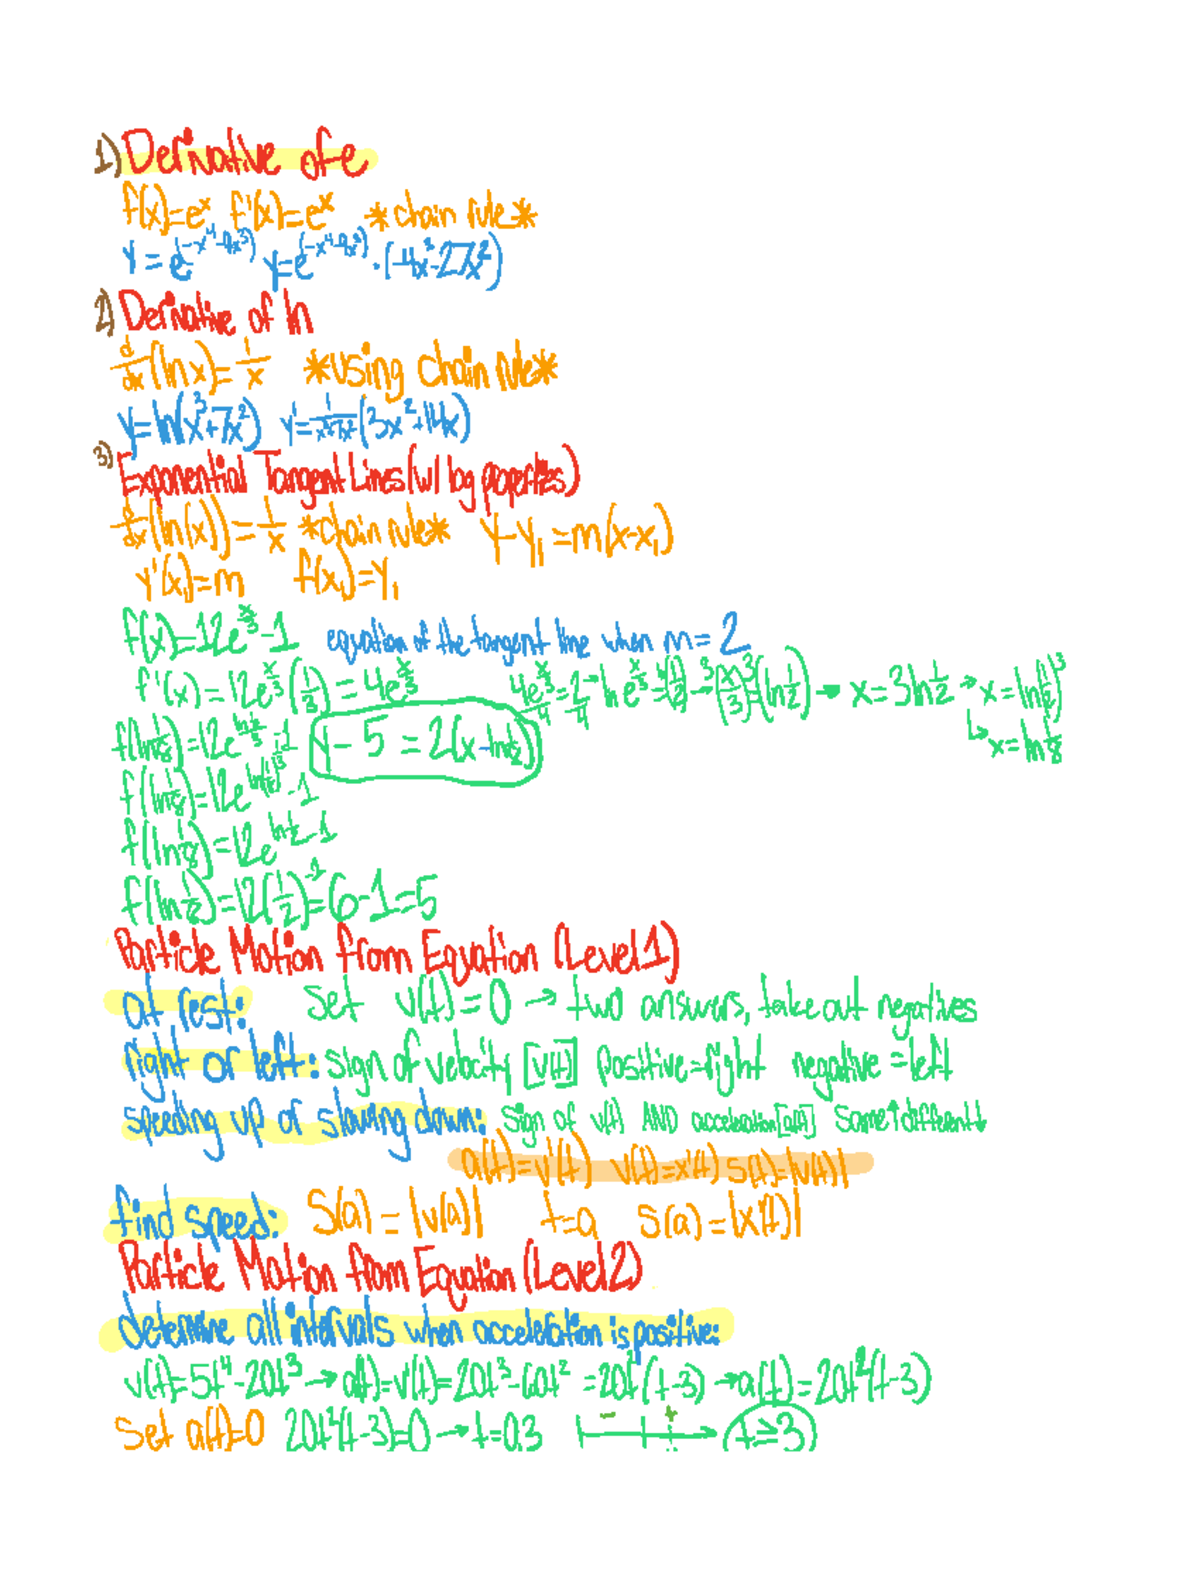 1) Derivative of e
f(x)=eˣ f'(x)=eˣ *chain rule*
y = e^(-x⁴-9x³) y=e^(-x⁴-9x³)·(-4x³-27x²)
2) Derivative of ln
d/dx(ln x)=1/x *using chain rule*
y=ln(x³+7x²) y'=1/(x³+7x²)(3x²+14x)
3) Exponential Tangent Lines (w/ log properties)
d/dx(ln(x))=1/x *chain rule* y-y₁=m(x-x₁)
y'(x₁)=m f(x₁)=y₁
f(x)=12e^(x/3)-1 equation of the tangent line when m=2
f'(x)=12e^(x/3)(1/3)=4e^(x/3) 4e^(x/3)/4=2/4→ln e^(x/3)=ln(1/2)→³(x/3)=³(ln 1/2)→x=3ln 1/2→x=ln(1/2)³
↳x=ln 1/8
f(ln 1/8)=12e^(ln 1/8 /3)-1 y-5=2(x-ln 1/8)
f(ln 1/8)=12e^(ln(1/8)^(1/3))-1
f(ln 1/8)=12e^(ln 1/2)-1
f(ln 1/8)=12(1/2)-1=6-1=5
Particle Motion from Equation (Level 1)
at rest: Set v(t)=0 → two answers, take out negatives
right or left: sign of velocity [v(t)] positive=right negative=left
speeding up or slowing down: sign of v(t) AND acceleration[a(t)] Same↑different↓
a(t)=v'(t) v(t)=x'(t) s(t)=|v(t)|
find speed: S(a)=|v(a)| t=a S(a)=|x'(t)|
Particle Motion from Equation (Level 2)
determine all intervals when acceleration is positive:
v(t)=5t⁴-20t³→a(t)=v'(t)=20t³-60t²=20t²(t-3)→a(t)=20t²(t-3)
Set a(t)=0 20t²(t-3)=0→t=0,3 - + t≥3